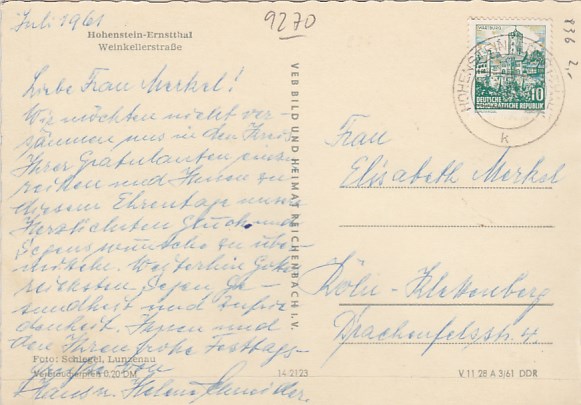 Juli 1961
9270
836 2,-
Hohenstein-Ernstthal
Weinkellerstraße
Liebe Frau Merkel!
Wir möchten nicht ver-
säumen uns in den Kreis
Ihrer Gratulanten einzu
reihen und Ihnen zu
diesem Ehrentage unsere
Herzlichsten Glück und
Segenswünsche zu über-
mitteln. Weiterhin Gottes
reichsten Segen, Ge-
sundheit und Zufrie-
denheit. Ihnen und
den Ihren frohe Festtags-
grüße
Hans u. Helene
Foto: Schlegel, Lunzenau
Verbraucherpreis 0,20 DM
14-2123
V 11 28 A 3/61 DDR
VEB BILD UND HEIMAT REICHENBACH I. V.
10
DEUTSCHE
DEMOKRATISCHE REPUBLIK
HOHENSTEIN
k
Frau
Elisabeth Merkel
Köln-Klettenberg
Drachenfelsstr. 4